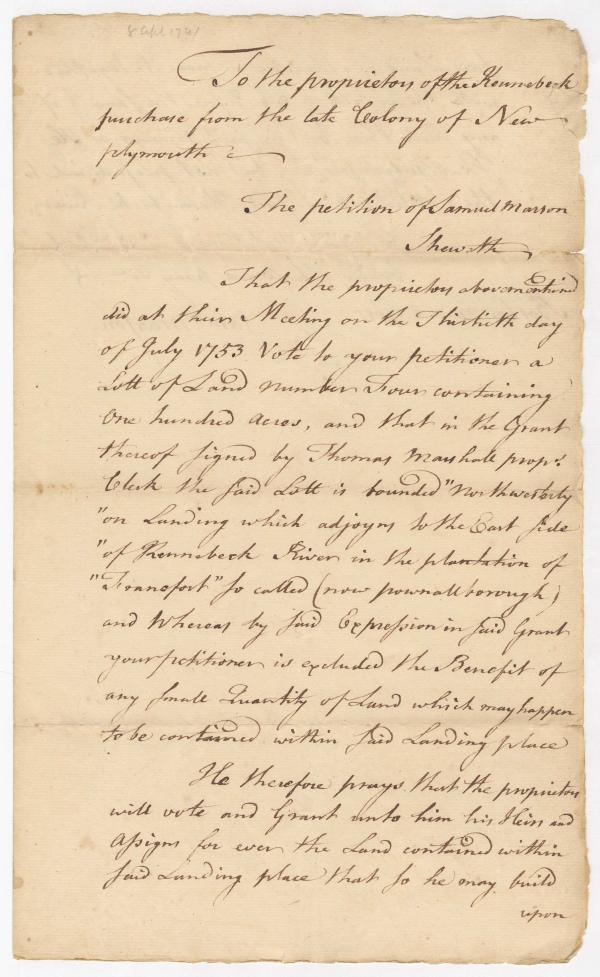 To the proprietors of the Kennebeck
purchase from the late Colony of New
plymouth
The petition of Samuel Marson
Sheweth
That the proprietors abovementioned
did at their Meeting on the Thirtieth day
of July 1753 Vote to your petitioner a
Lott of Land number Four containing
One hundred Acres, and that in the Grant
thereof signed by Thomas Marshall propr.s
Clerk the said Lott is bounded "Northwesterly
"on Landing which adjoyns to the East side
"of Kennebeck River in the plantation of
"Francfort" so called (now pownallborough)
and Whereas by said Expression in said Grant
your petitioner is excluded the Benefit of
any small Quantity of Land which may happen
to be contained within said Landing place
He therefore prays that the proprietors
will vote and Grant unto him his Heirs and
Assigns for ever the Land contained within
said Landing place that so he may build
upon